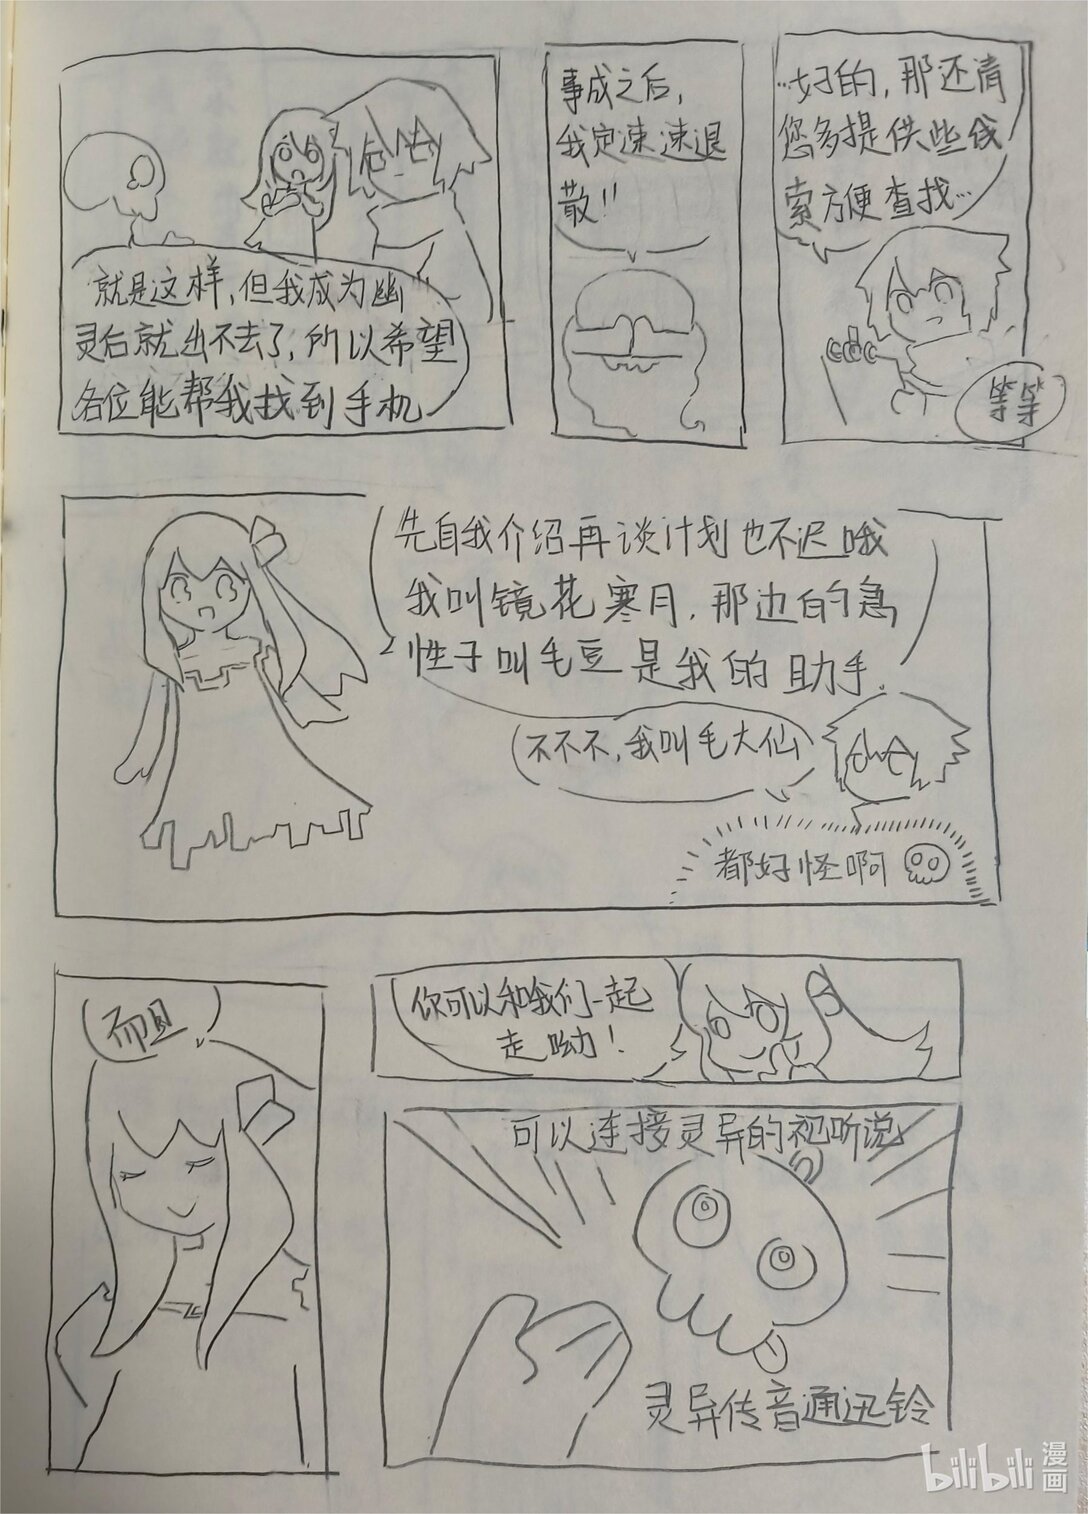 就是这样，但我成为幽
灵后就出不去了，所以希望
各位能帮我找到手机
事成之后，
我定速速退
散！！
…好的，那还请
您多提供些线
索方便查找…
等等
先自我介绍再谈计划也不迟哦
我叫镜花寒月，那边的急
性子叫毛豆是我的助手。
不不不，我叫毛大仙
都好怪啊
而且
你可以和我们一起
走呦！
可以连接灵异的视听说
灵异传音通迅铃
bilibili
漫画